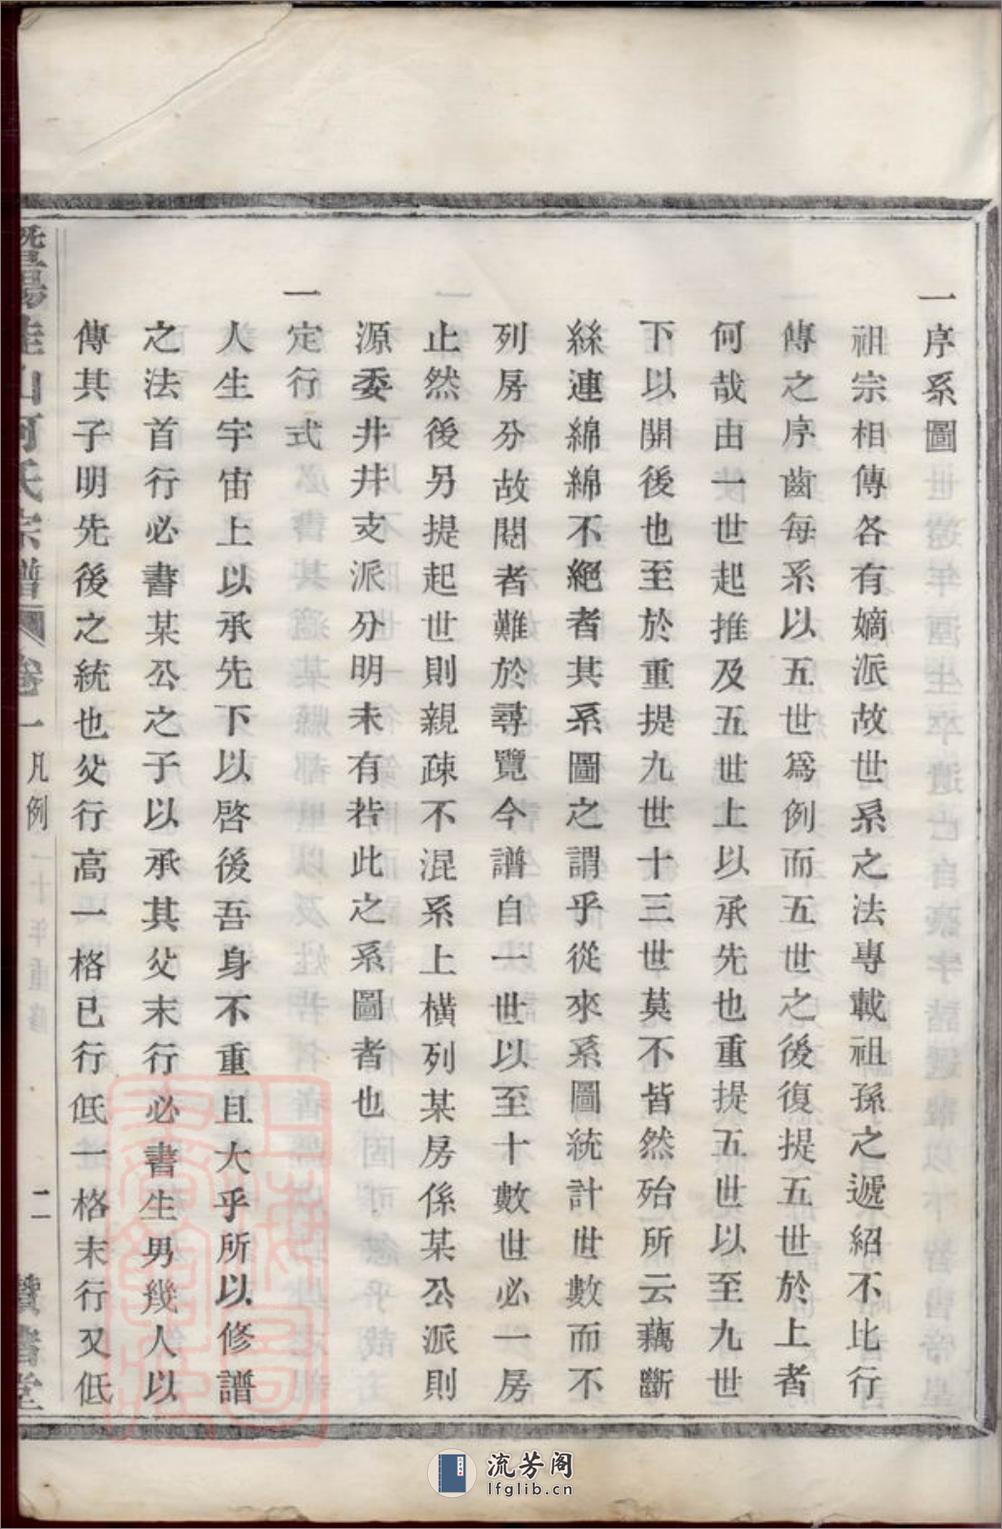 一序系圖
祖宗相傳各有嫡派故世系之法專載祖孫之遞紹不比行
傳之序齒每系以五世爲例而五世之後復提五世於上者
何哉由一世起推及五世上以承先也重提五世以至九世
下以開後也至於重提九世十三世莫不皆然殆所云藕斷
絲連綿綿不絕者其系圖之謂乎從來系圖統計世數而不
列房分故閱者難於尋覽今譜自一世以至十數世必一房
止然後另提起世則親疎不混系上橫列某房係某公派則
源委井井支派分明未有若此之系圖者也
一定行式
人生宇宙上以承先下以啓後吾身不重且大乎所以修譜
之法首行必書某公之子以承其父末行必書生男幾人以
傳其子明先後之統也父行高一格已行低一格末行又低
暨陽桂山何氏宗譜 卷一 凡例 二 堂
流芳阁
lfglib.cn